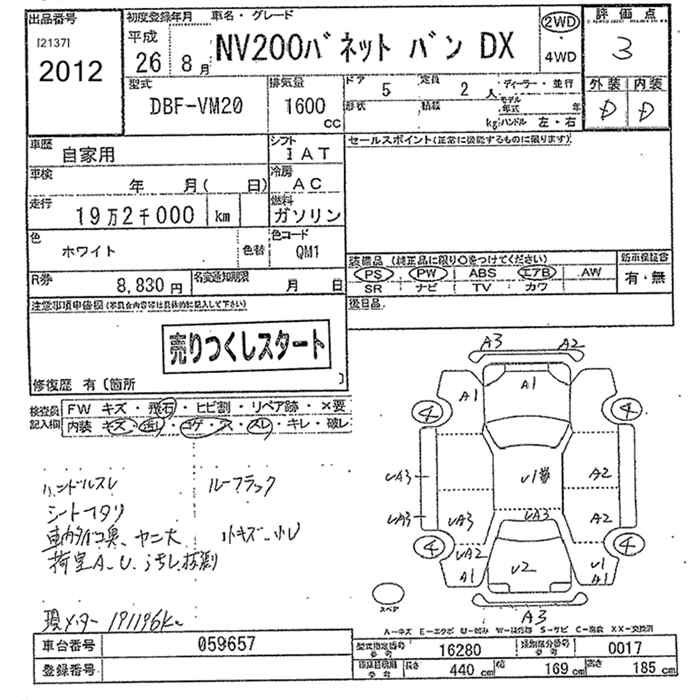 出品番号
[2137]
2012
初度登録年月
平成
26
8月
車名・グレード
NV200バネット バン DX
2WD
・
4WD
評価点
3
型式
DBF-VM20
排気量
1600
CC
ドア
5
定員
2 人
ディーラー・並行
形状
積載
kg
モデル年式
年
ハンドル 左・右
外装 内装
D D
車歴
自家用
シフト
I AT
セールスポイント(正常に機能するものに限ります)
車検
年 月( 日)
冷房
AC
走行
19万2千000 km
燃料
ガソリン
色
ホワイト
色替
色コード
QM1
装備品 (純正品に限り○をつけてください)
PS PW ABS エアB AW
SR ナビ TV カワ
新車保証書
有・無
R券
8,830円
名変通知期限
月 日
後日品
注意事項申告欄
売りつくしスタート
修復歴 有 [箇所 ]
検査員
記入欄
FW キズ・飛石・ヒビ割・リペア跡・×要
内装 キズ・汚レ・コゲ・穴・スレ・キレ・破レ
ハンドルスレ
ルーフラック
シートヘタリ
車内タバコ臭、ヤニ大
小キズ・小U
荷室A、U、汚れ、
現メーター 191196km
A3
A2
A1
A1
4
4
UA3
U1
A2
UA3
UA3
UA3
A2
4
4
UA2
U1
A1
U2
A1
スペア
A3
A-キズ E-エクボ U-凹み W-補修跡 S-サビ C-腐蝕 XX-交換済
車台番号
059657
登録番号
型式指定番号
参考
16280
類別区分番号
参考
0017
参考
長さ
440 cm
幅
169 cm
高さ
185 cm